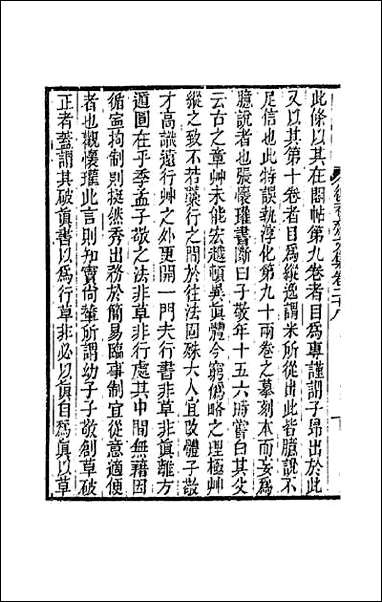 此條以其在閣帖第九卷者目爲專謹謂子昂出於此
又以其第十卷者目爲縱逸謂米所從出此皆臆說不
足信也此特誤執淳化第九十兩卷之摹刻本而妄爲
臆說者也張懷瓘書斷曰子敬年十五六時嘗白其父
云古之章艸未能宏越頓異眞體今窮僞略之理極艸
縱之致不若藁行之間於往法固殊大人宜改體子敬
才高識遠行艸之外更開一門夫行書非草非眞離方
遁圓在乎季孟子敬之法非草非行處其中閒無藉因
循寍拘制則挺然秀出務於簡易臨事制宜從意適便
者也觀懷瓘此言則知竇尚輦所謂幼子子敬創草破
正者葢謂其破眞書以爲行草非必以眞自爲眞以草